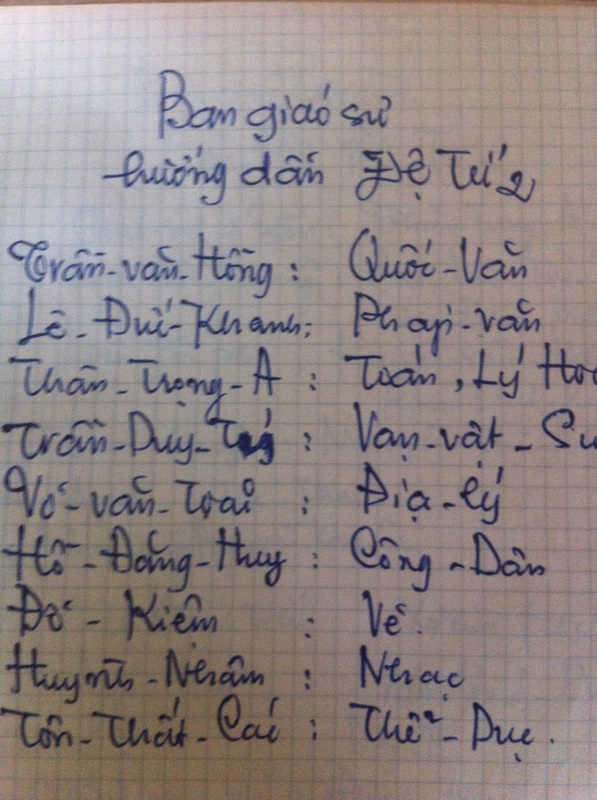 Ban giáo sư
hướng dẫn Đệ Tứ 2
Trần-văn-Hồng : Quốc-Văn
Lê-Đức-Khanh : Pháp-văn
Thân-Trọng-A : Toán, Lý Hoá
Trần-Duy- : Vạn-vật-Sử
Võ-văn-Trai : Địa-lý
Hồ-Đăng-Huy : Công-Dân
Đỗ-Kiêm : Vẽ.
Huỳnh-Nhâm : Nhạc
Tôn-Thất-Cái : Thể-Dục.